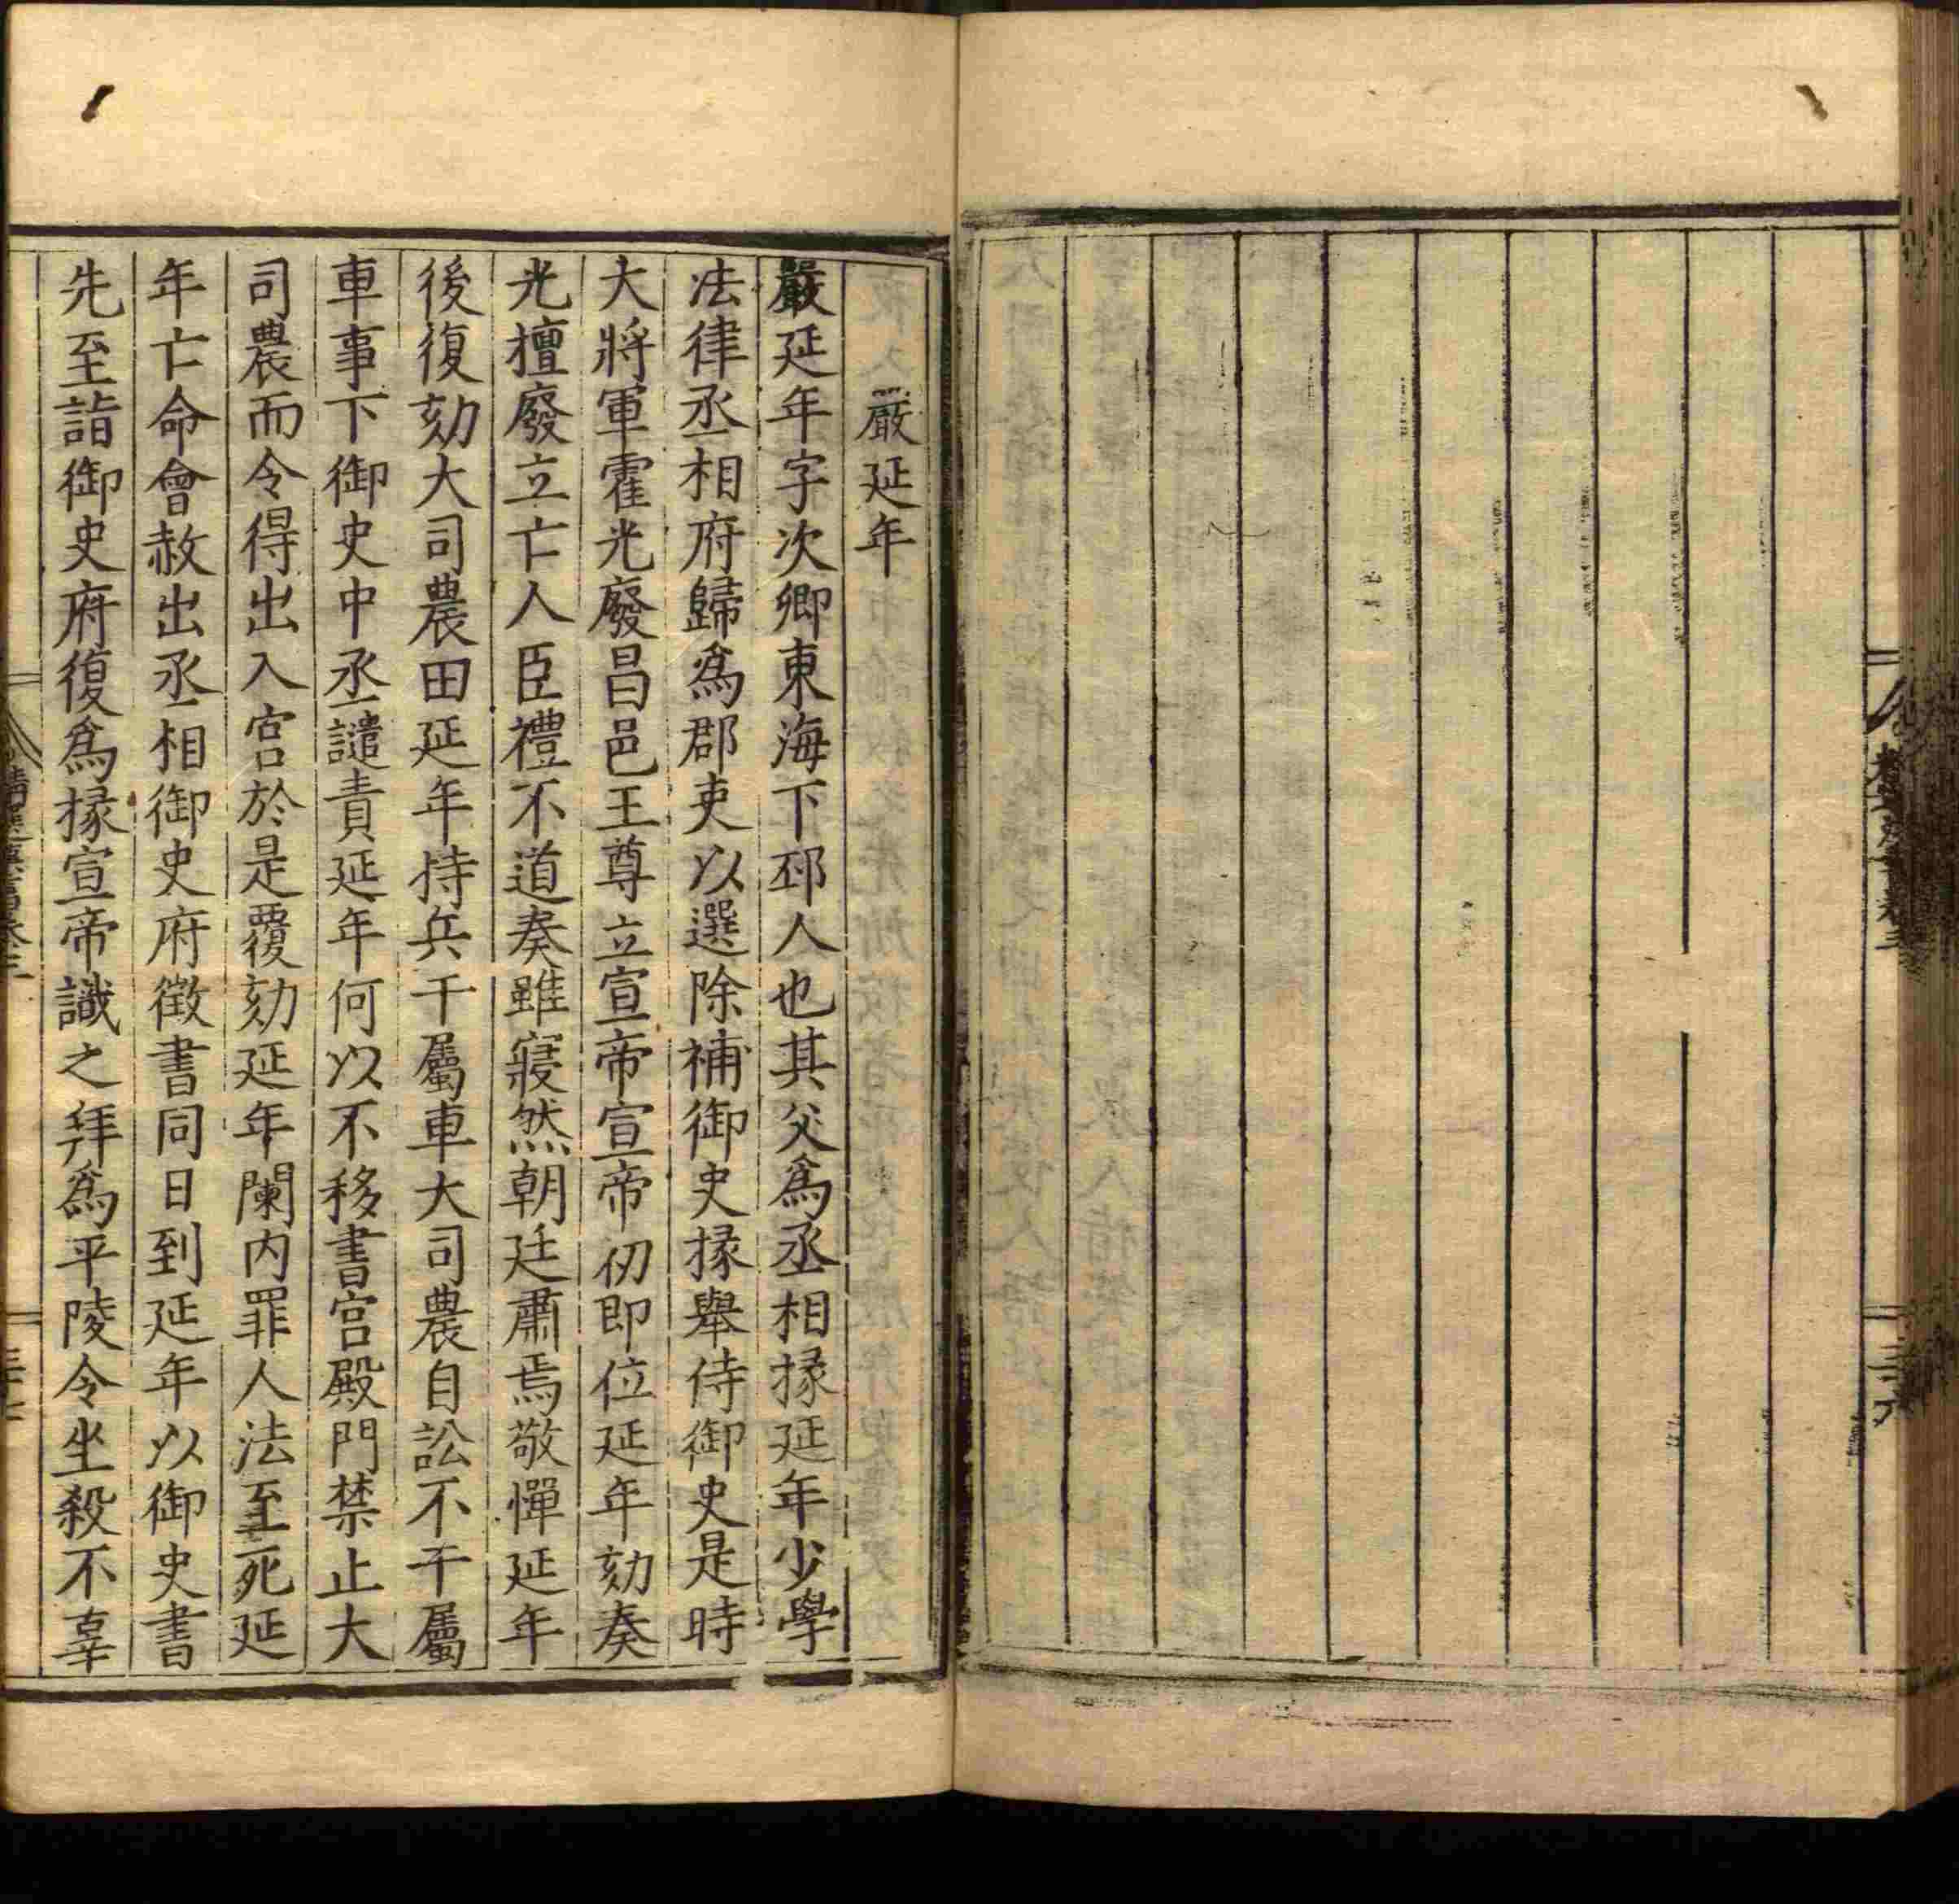 三十六
嚴延年
嚴延年字次卿東海下邳人也其父爲丞相掾延年少學
法律丞相府歸爲郡吏以選除補御史掾舉侍御史是時
大將軍霍光廢昌邑王尊立宣帝宣帝初即位延年劾奏
光擅廢立亡人臣禮不道奏雖寢然朝廷肅焉敬憚延年
後復劾大司農田延年持兵干屬車大司農自訟不干屬
車事下御史中丞譴責延年何以不移書宮殿門禁止大
司農而令得出入宮於是覆劾延年闌内罪人法至死延
年亡命會赦出丞相御史府徵書同日到延年以御史書
先至詣御史府復爲掾宣帝識之拜爲平陵令坐殺不辜